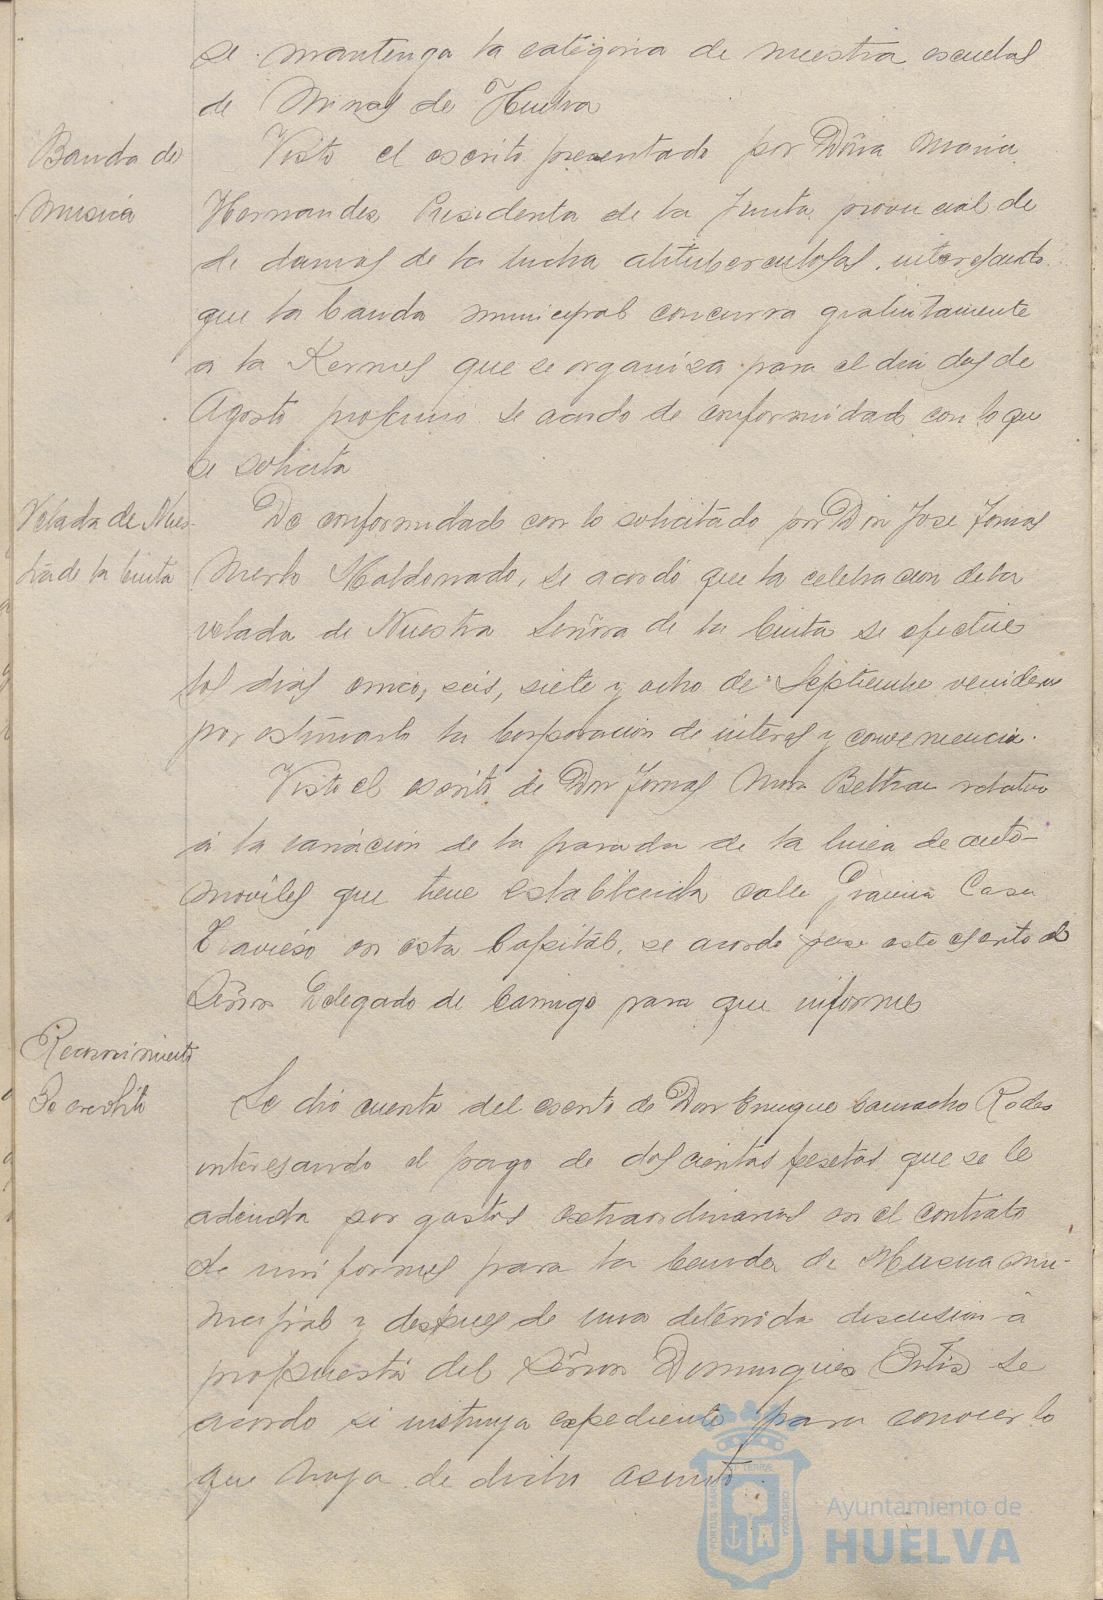 se mantenga la categoria de nuestra escuelas
de Minas de Huelva
Banda de
Musica
Visto el escrito presentado por Doña Maria
Hernandez Presidenta de la Junta provincial de
de damas de la lucha atituberculosas, interesando
que la banda municipal concurra gratuitamente
a la Kermes que se organiza para el dia dos de
Agosto proximo se acordo de conformidad con lo que
se solicita
Velada de Nues-
tra de la Cinta
De conformidad con lo solicitado por Don Jose Tomas
Merlo Maldonado, se acordó que la celebracion de la
velada de Nuestra Señora de la Cinta se efectue
los dias cinco, seis, siete y ocho de Septiembre venidero
por estimarlo la Corporacion de interes y conveniencia.
Visto el escrito de Don Tomas Mora Beltran relativo
a la variacion de la parada de la linea de auto-
moviles que tiene establecida calle Gravina Casa
Travieso en esta Capital, se acordo pase este escrito al
Señor Delegado de para que informe
Reconocimiento
De credito
Se dió cuenta del escrito de Don Enrique Camacho Rodes
interesando el pago de doscientas pesetas que se le
adeuda por gastos extraordinarios en el contrato
de uniformes para la banda de Musica mu-
nicipal y despues de una detenida discusion a
propuesta del Señor Dominguez Ortiz se
acordo si instruya expediente para conocer lo
que haya de dicho asunto.
Ayuntamiento de
HUELVA